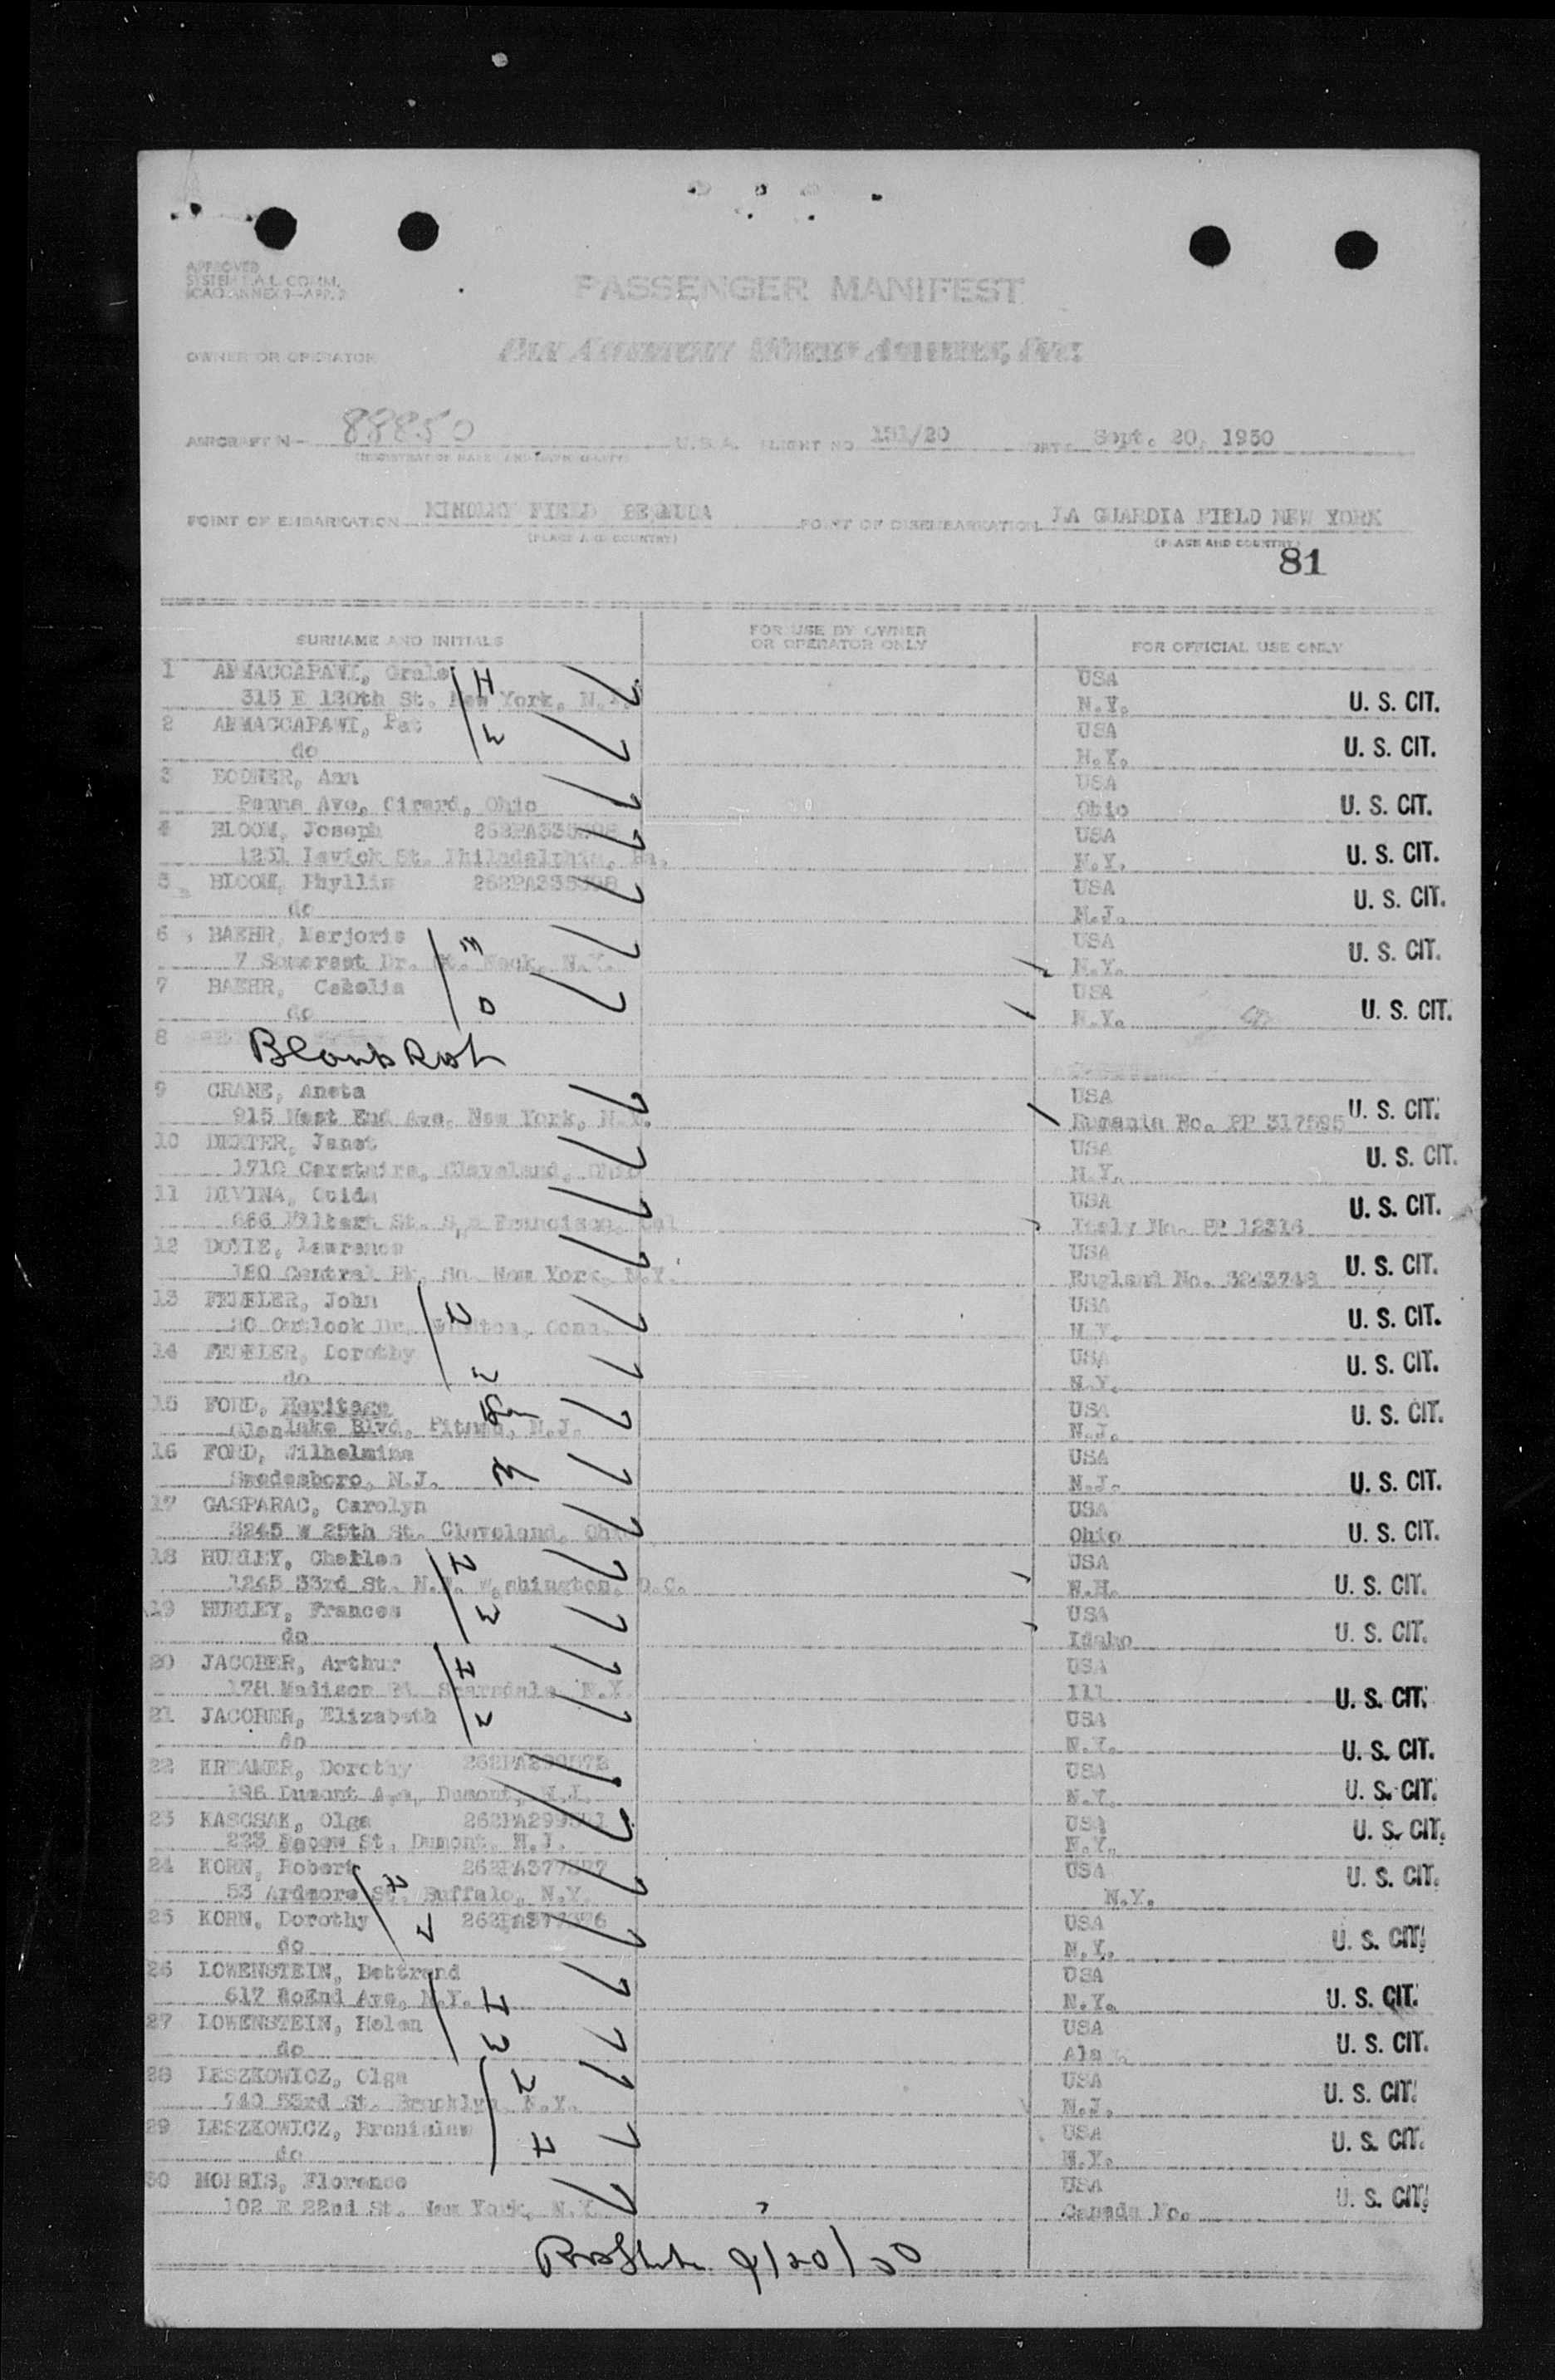 APPROVED
SYSTEM A.L. COMM.
ICAO ANNEX 9—APP. 2
PASSENGER MANIFEST
OWNER OR OPERATOR Pan American World Airways, Inc.
AIRCRAFT N- 88850 U.S.A. FLIGHT NO 131/20 DATE Sept. 20, 1950
(REGISTRATION MARKS AND NATIONALITY)
POINT OF EMBARKATION KINDLEY FIELD BERMUDA POINT OF DISEMBARKATION LA GUARDIA FIELD NEW YORK
(PLACE AND COUNTRY) (PLACE AND COUNTRY)
81
SURNAME AND INITIALS FOR USE BY OWNER OR OPERATOR ONLY FOR OFFICIAL USE ONLY
1 AMMACCAPANI, USA
315 E 120th St. New York, N.Y. N.Y. U. S. CIT.
2 AMMACCAPANI, Pat USA
do N.Y. U. S. CIT.
3 Ann USA
Penna Ave, Girard, Ohio Ohio U. S. CIT.
4 BLOOM, Joseph USA
Philadelphia, Pa. N.Y. U. S. CIT.
5 BLOOM, Phyllis USA
do N.J. U. S. CIT.
6 BAEHR, Marjorie USA
7 Somerset Dr. Neck, N.Y. N.Y. U. S. CIT.
7 BAEHR, USA
do N.Y. U. S. CIT.
8
9 CRANE, Aneta USA
915 West End Ave, New York, N.Y. Rumania No. PP 317595 U. S. CIT.
10 DEXTER, Janet USA
Cleveland, Ohio N.Y. U. S. CIT.
11 DIVINA, Guida USA
666 Filbert St. San Francisco, Cal Italy No. PP 12316 U. S. CIT.
12 DOYLE, Lawrence USA
Central Pk. So. New York, N.Y. England No. 3243748 U. S. CIT.
13 John USA
Outlook Dr. Conn. N.Y. U. S. CIT.
14 Dorothy USA
do N.Y. U. S. CIT.
15 FORD, Heritage USA
Glenlake Blvd, Pitman, N.J. N.J. U. S. CIT.
16 FORD, Wilhelmina USA
Swedesboro, N.J. N.J. U. S. CIT.
17 GASPARAC, Carolyn USA
3245 W 25th St. Cleveland, Ohio Ohio U. S. CIT.
18 HURLEY, Charles USA
1245 33rd St. N.W. Washington, D.C. N.H. U. S. CIT.
19 HURLEY, Frances USA
do Idaho U. S. CIT.
20 JACOBER, Arthur USA
178 Madison Rd. Scarsdale N.Y. Ill U. S. CIT.
21 JACOBER, Elizabeth USA
do N.Y. U. S. CIT.
22 KREAMER, Dorothy USA
196 Dumont Ave, Dumont, N.J. N.Y. U. S. CIT.
23 KASCSAK, Olga USA
St. Dumont, N.J. N.Y. U. S. CIT.
24 KORN, Robert USA
53 Ardmore St. Buffalo, N.Y. N.Y. U. S. CIT.
25 KORN, Dorothy USA
do N.Y. U. S. CIT.
26 LOWENSTEIN, Bettrand USA
617 WoEnd Ave, N.Y. N.Y. U. S. CIT.
27 LOWENSTEIN, Helen USA
do Ala U. S. CIT.
28 LESZKOWICZ, Olga USA
740 53rd St. Brooklyn, N.Y. N.J. U. S. CIT.
29 LESZKOWICZ, Bronislaw USA
do N.Y. U. S. CIT.
30 MORRIS, Florence USA
102 E 22nd St. New York, N.Y. Canada No. U. S. CIT.
9/20/50